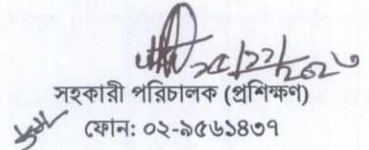 সহকারী পরিচালক (প্রশিক্ষণ)
ফোন: ০২-৯৫৬১৪৩৭